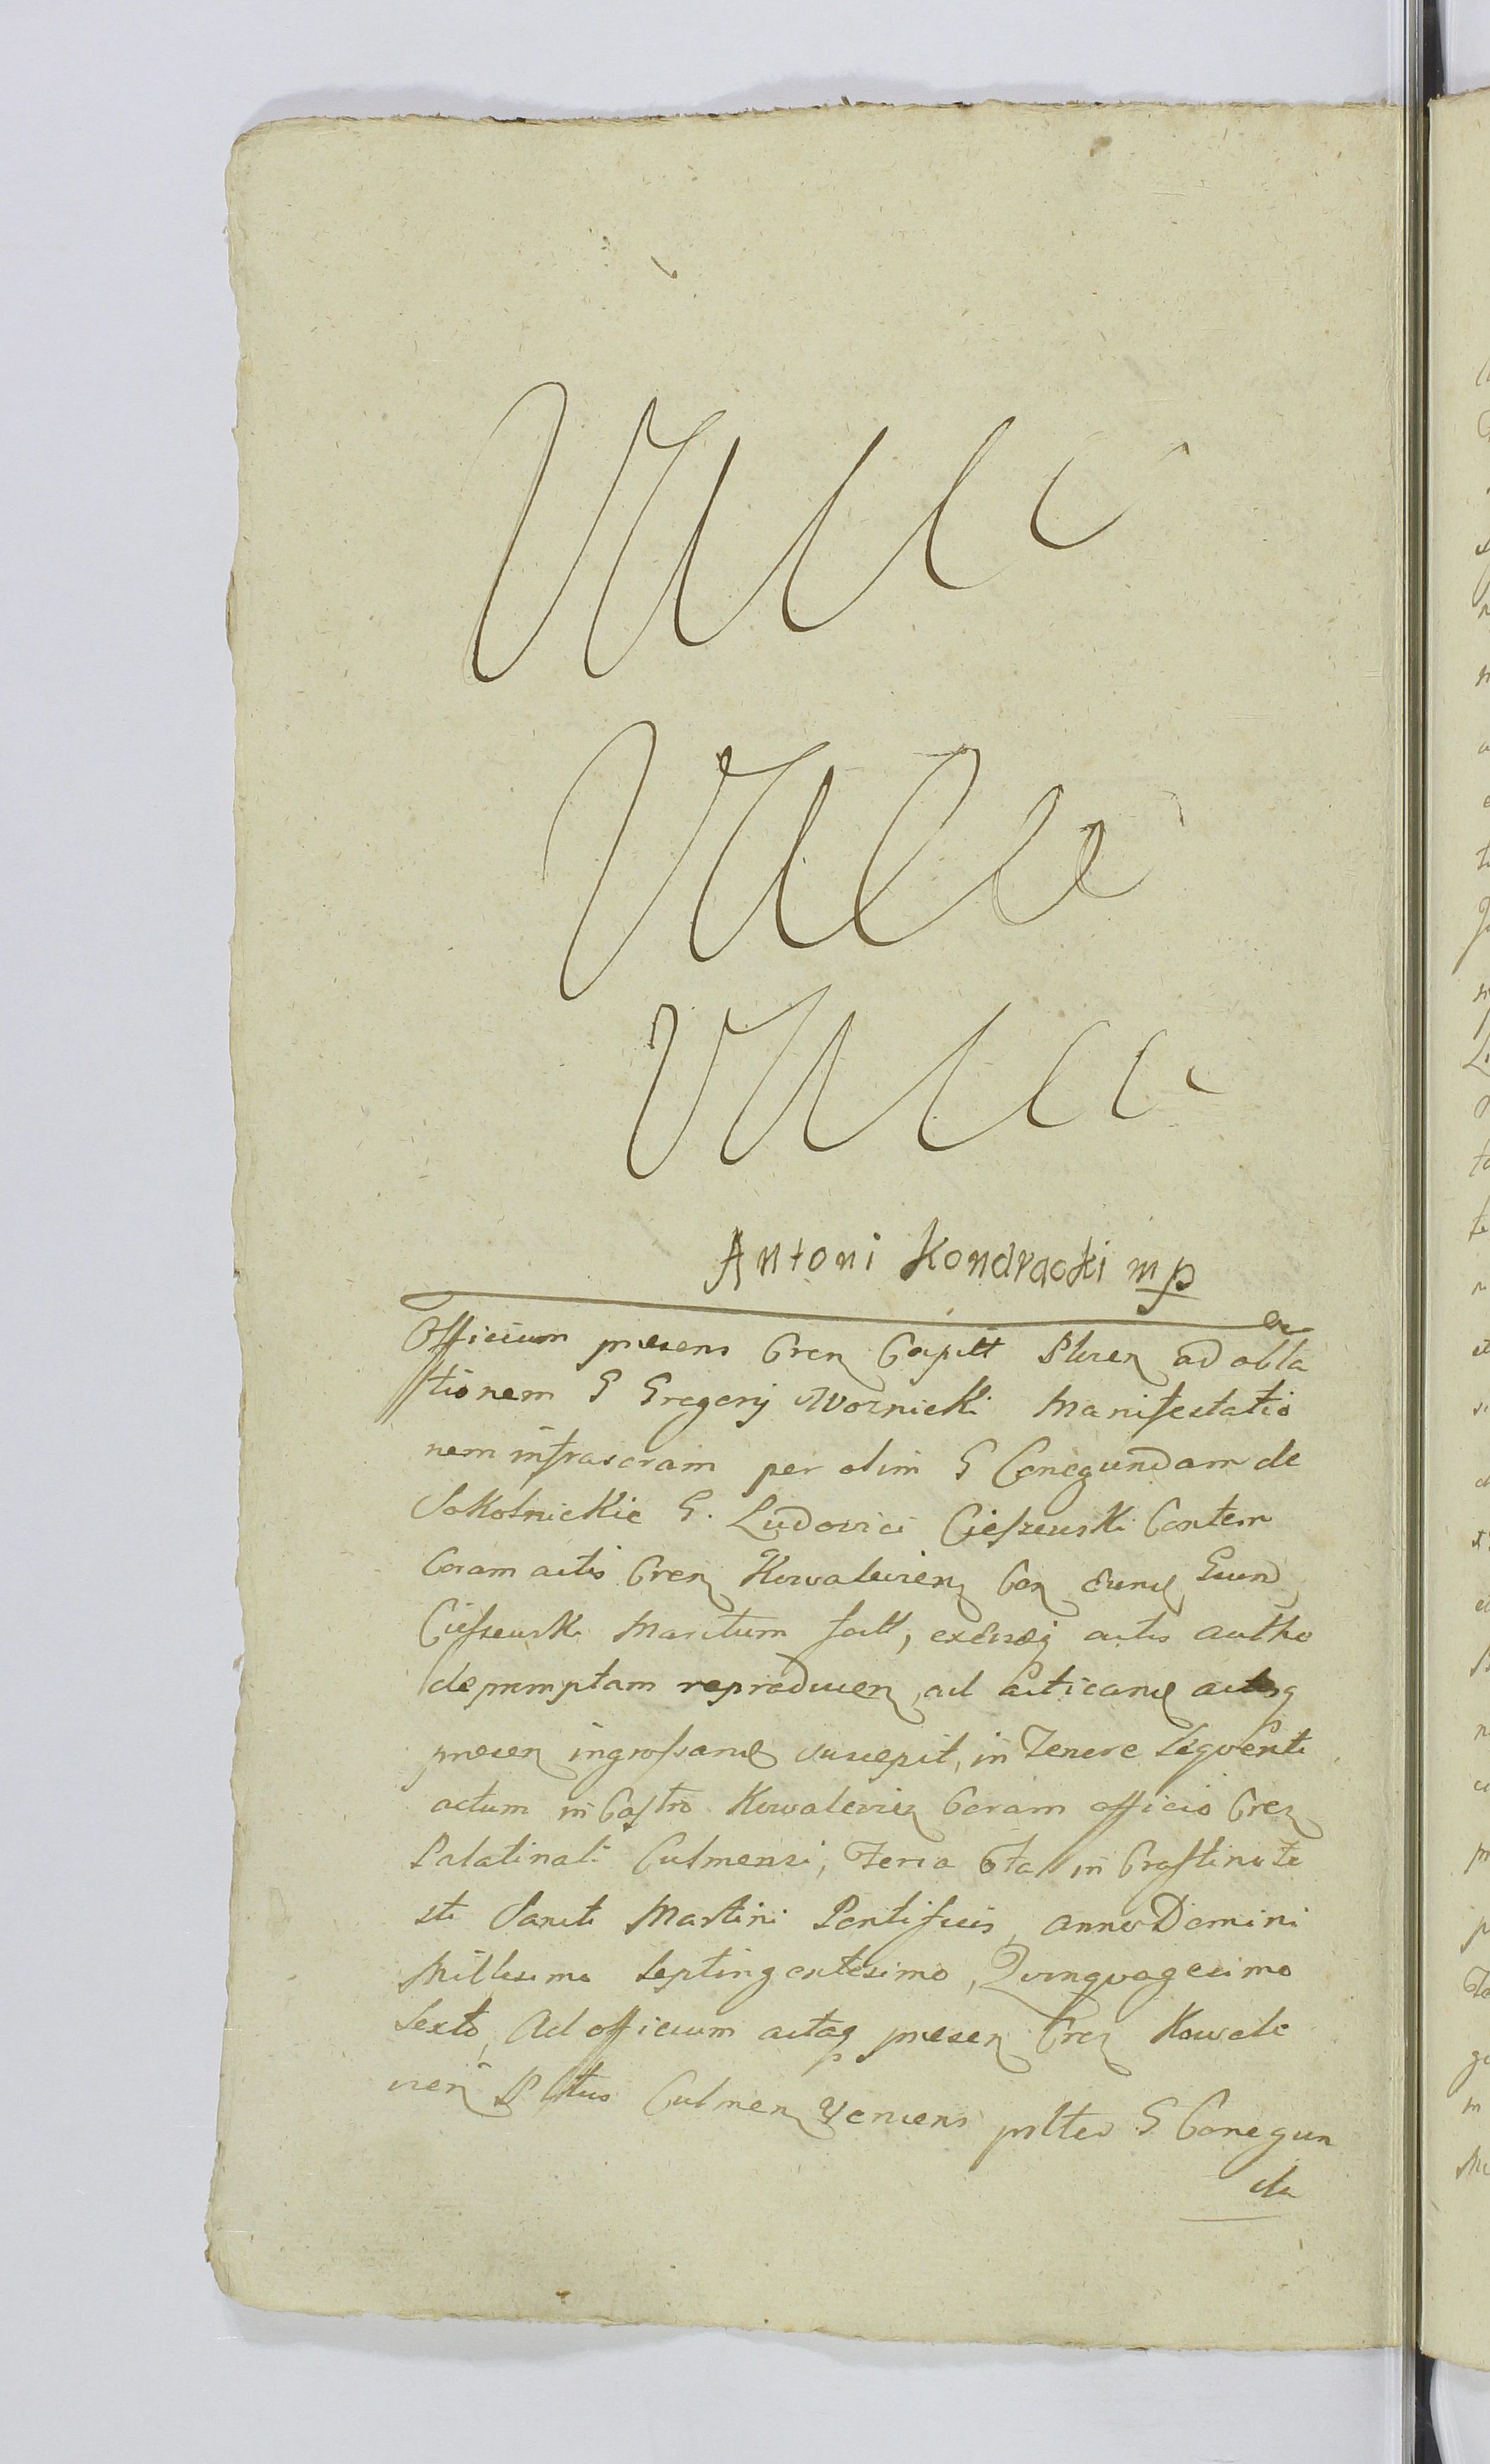 Antoni Kondracki mp
Officium presens Cren Capitt Pluen ad obla
tionem G Gregorij Woznicki Manifestatio
nem infrascram per olim G Conegundam de
Sokolnickie G. Ludovici Cieszewski Contem
Coram actis Cren Kowalevien Con Eund Gund
Cieszewski Maritum fact, exEisdq actis autho
depromptam reproducen, ad acticand actisq
presen ingrossand suscepit, in Tenere Seqventi
actum in Castro Kowalevien Coram officio Cren
Palatinati Culmensi, Feria 6ta in Crastino Fe
sti Sancti Martini Pontificis, anno Domini
Millesimo Septingentesimo, Qvinqvagesimo
Sexto, Ad officium actaq presen Cren Kowale
vien Pltus Culmen Veniens pslter G Conegun
da